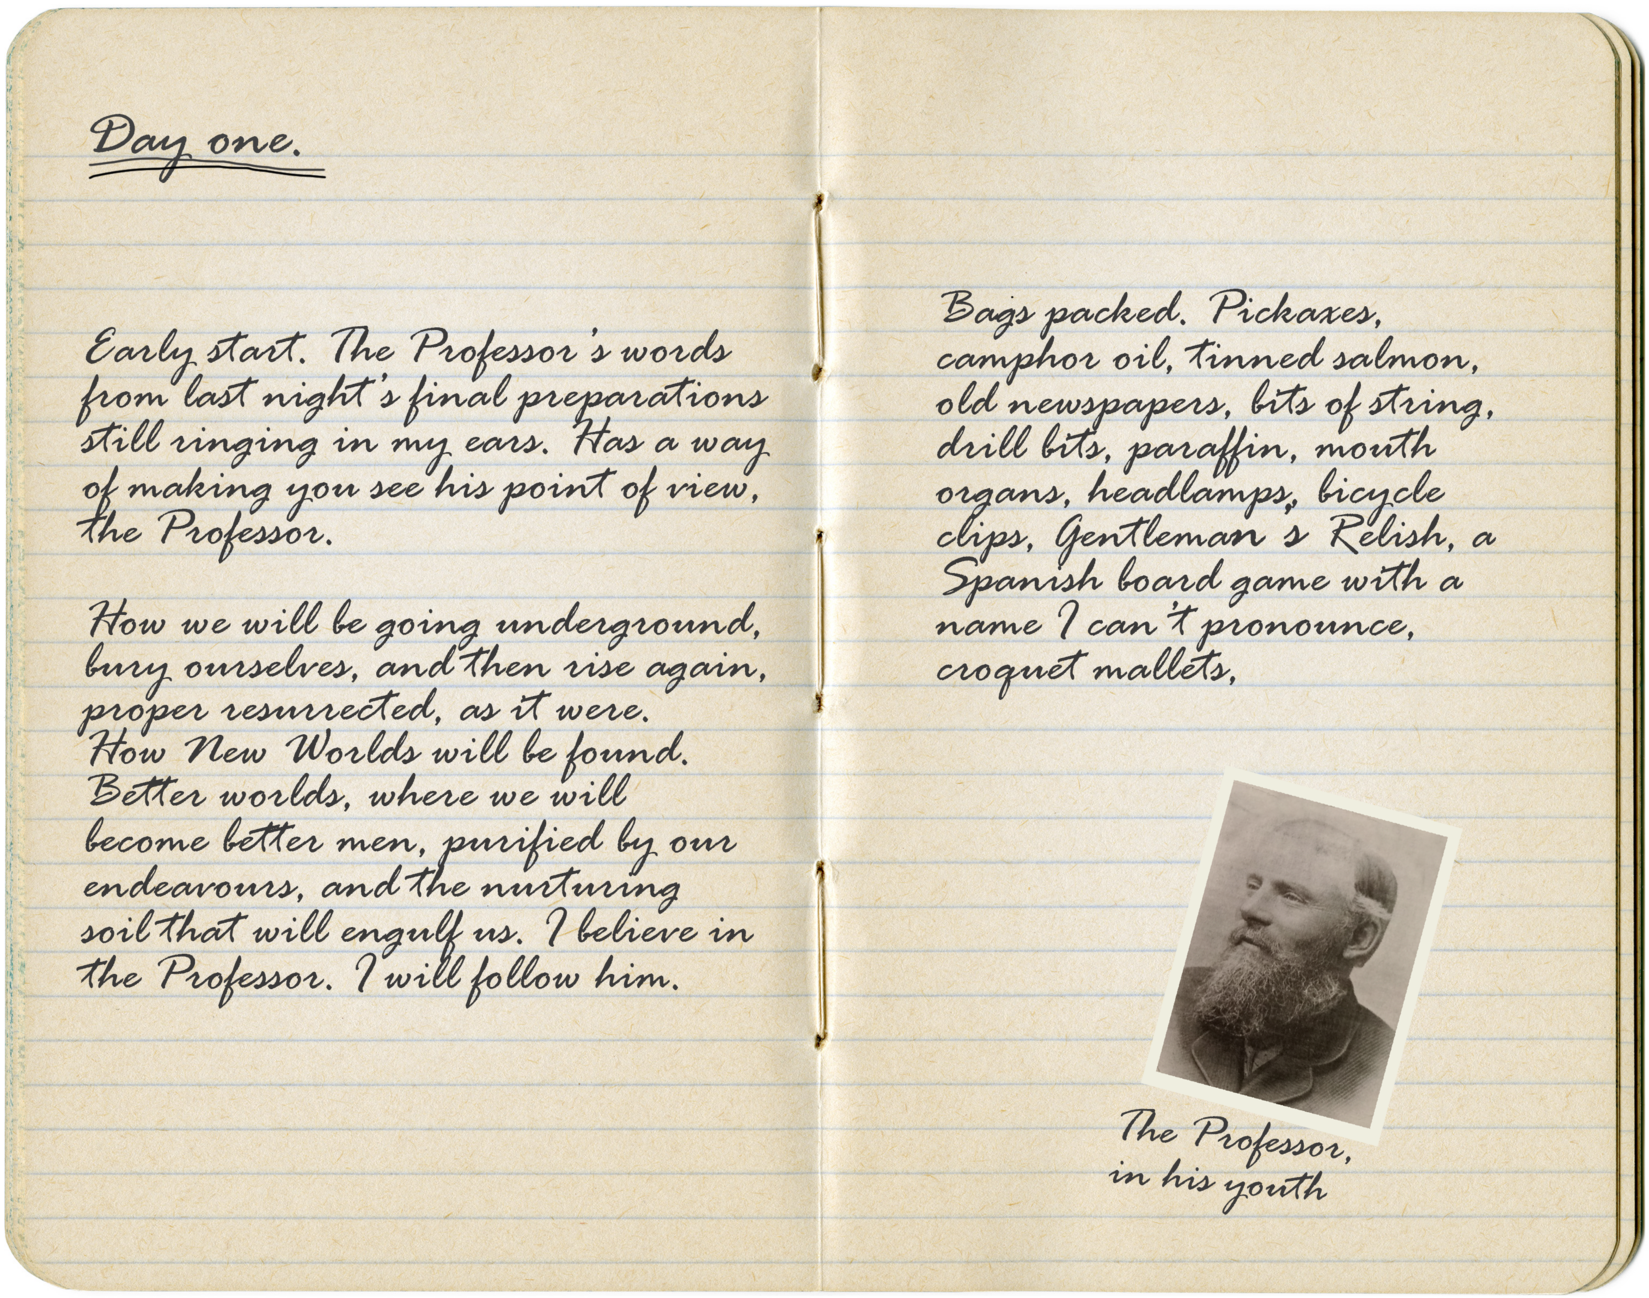 Day one.
Early start. The Professor's words
from last night's final preparations
still ringing in my ears. Has a way
of making you see his point of view,
the Professor.
How we will be going underground,
bury ourselves, and then rise again,
proper resurrected, as it were.
How New Worlds will be found.
Better worlds, where we will
become better men, purified by our
endeavours, and the nurturing
soil that will engulf us. I believe in
the Professor. I will follow him.
Bags packed. Pickaxes,
camphor oil, tinned salmon,
old newspapers, bits of string,
drill bits, paraffin, mouth
organs, headlamps, bicycle
clips, Gentleman's Relish, a
Spanish board game with a
name I can't pronounce,
croquet mallets,
The Professor,
in his youth